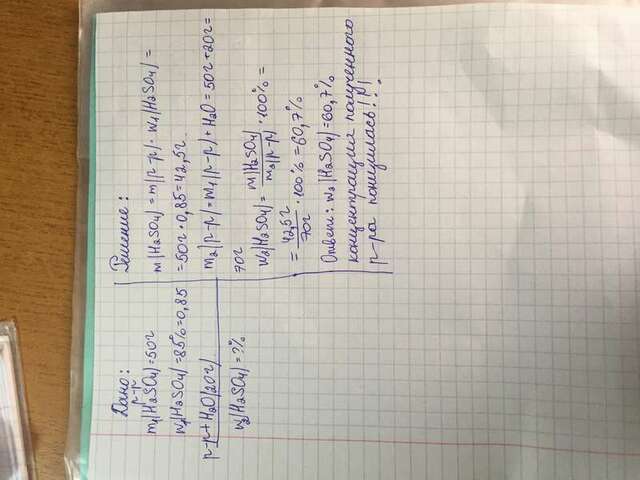 Дано:
р-р
m₁(H2SO4)=50г
w₁(H2SO4)=85%=0,85
р-р+H2O(20г)
w₂(H2SO4)=?%
Решение:
m(H2SO4)=m(р-р)·w₁(H2SO4)=
=50г·0,85=42,5г
m₂(р-р)=m₁(р-р)+H2O=50г+20г=
70г
w₂(H2SO4)=m(H2SO4)/m₂(р-р)·100%=
=42,5г/70г·100%=60,7%
Ответ: w₂(H2SO4)=60,7%
концентрация полученного
р-ра понизилась!!!